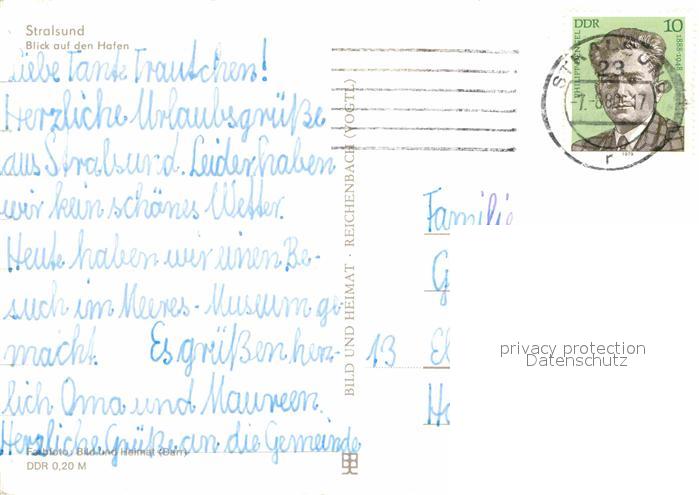 Stralsund
Blick auf den Hafen
Liebe Tante Trautchen!
Herzliche Urlaubsgrüße
aus Stralsund. Leider haben
wir kein schönes Wetter.
Heute haben wir einen Be-
such im Meeres-Museum ge-
macht. Es grüßen herz-
lich Oma und Maureen.
Herzliche Grüße an die Gemeinde
Farbfoto: Bild und Heimat (Darr)
DDR 0,20 M
BILD UND HEIMAT · REICHENBACH (VOGTL)
DDR 10
1888-1948
1979
23
r
Familie
G
13 El
Ha
privacy protection
Datenschutz